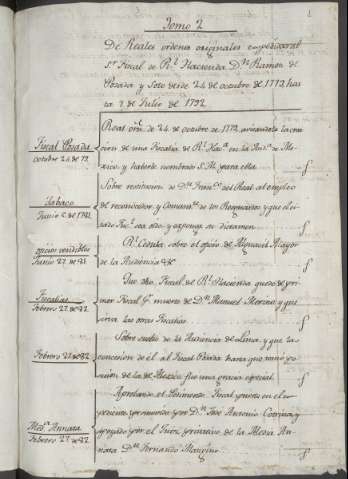 Tomo 2
De Reales ordenes originales expedidas al
Sr. Fiscal de Rl. Hacienda Dn. Ramon de
Posada y Soto desde 24 de octubre de 1779 has
ta 7 de Julio de 1792
Fiscal Posada
octubre 24 de 79
Real orn. de 24 de octubre de 1779 avisandole la crea
cion de una Fiscalia de Rl. Hazda. en la Auda. de Me-
xico y haberle nombrado S.M. para ella
Tabaco
Junio de 1781
Sobre restitucion de Dn. Franco. del Real al empleo
de reconocedor, y Comandte. de los Resguardos y que el ci-
tado sea oido, y exponga su dictamen
oficios vendibles
Junio 27 de 81
Rl. Cedula sobre el oficio de Alguacil Mayor
de la Audiencia de
Fiscalias
Febrero 27 de 82
Que dho. Fiscal de Rl. Hacienda quede de pri
mer Fiscal pr. muerte de Dn. Manuel Merino y que
sirva las otras Fiscalias
Febrero 27 de 82
Sobre sueldo de la Audiencia de Lima, y que la
concesion de el al Fiscal Posada hasta que tomó po-
sesion de la de Mexico fue una gracia especial
Meda. Annata
Febrero 27 de 82
Aprobando el Pedimento Fiscal puesto en el ex-
pediente promovido por Dn. Jose Antonio
apoyado por el Juez privativo de la Media An-
nata Dn. Fernando Mangino